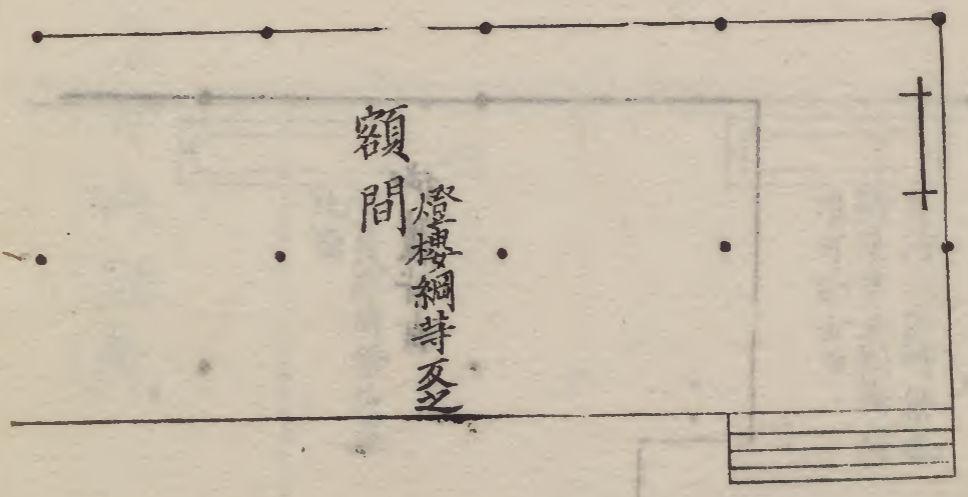 額間
燈樓綱等反之